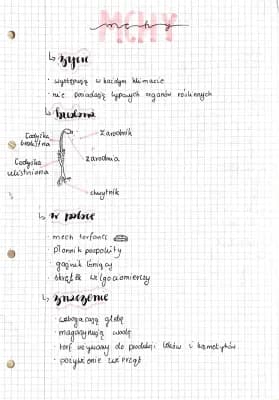 MCHY
mchy
↳ życie
· występują w każdym klimacie
· nie posiadają typowych organów roślinnych
↳ budowa
Łodyżka
bezlistna
zarodnik
zarodnia
Łodyżka
ulistniona
chwytnik
↳ w polsce
· mech torfowiec
· płonnik pospolity
· gajnik lśniący
· skrętek wilgociomierczy
↳ znaczenie
· wzbogacają glebę
· magazynują wodę
· torf używany do produkcji leków i kosmetyków
· pożywienie zwierząt